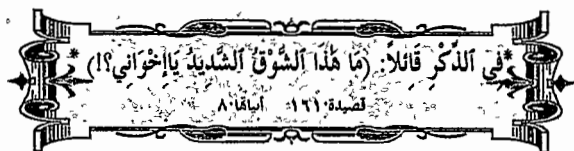 *فِي ٱلذِّكْرِ قَائلاً: (مَا هٰذَا ٱلشَّوْقُ ٱلشَّدِيدُ يَاإِخْوَانِي؟!)*
قصيدة: ١٦١ أبياتها: ٨